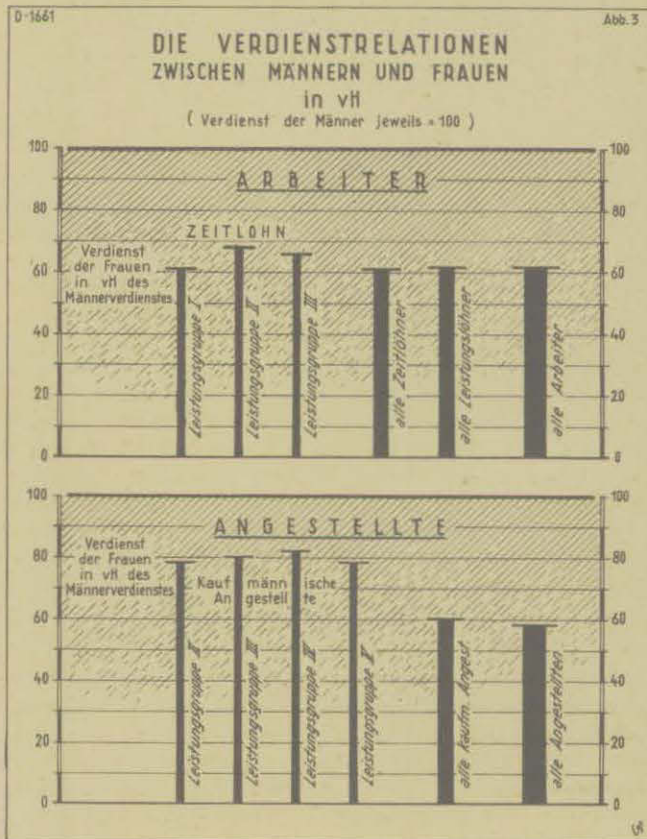 D-1661
Abb. 3
DIE VERDIENSTRELATIONEN
ZWISCHEN MÄNNERN UND FRAUEN
in vH
( Verdienst der Männer jeweils = 100 )
100
80
60
40
20
0
100
80
60
40
20
0
ARBEITER
ZEITLOHN
Verdienst
der Frauen
in vH des
Männerverdienstes
Leistungsgruppe I
Leistungsgruppe II
Leistungsgruppe III
alle Zeitlöhner
alle Leistungslöhner
alle Arbeiter
100
80
60
40
20
0
100
80
60
40
20
0
ANGESTELLTE
Verdienst
der Frauen
in vH des
Männerverdienstes
Kaufmännische
Angestellte
Leistungsgruppe II
Leistungsgruppe III
Leistungsgruppe IV
Leistungsgruppe V
alle kaufm. Angest
alle Angestellten